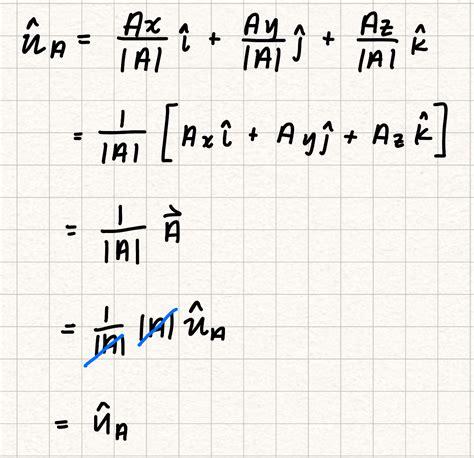 û_A = Ax/|A| î + Ay/|A| ĵ + Az/|A| k̂
= 1/|A| [Ax î + Ay ĵ + Az k̂]
= 1/|A| A⃗
= 1/|A| |A| û_A
= û_A